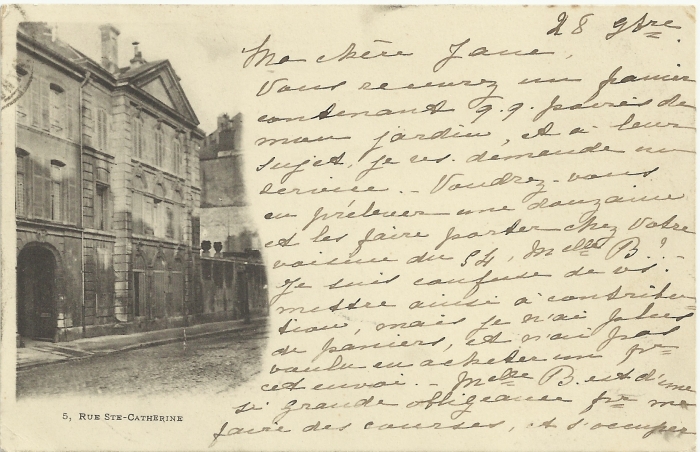 28 9bre
Ma chère Jane,
Vous recevrez un panier
contenant q.q. poires de
mon jardin, et à leur
sujet, je vs. demande un
service. - Voudrez-vous
en prélever une douzaine
et les faire porter chez votre
voisine du 54, Melle B? -
Je suis confuse de vs.
mettre ainsi à contribu-
tion, mais je n'ai plus
de paniers, et n'ai pas
voulu en acheter un pr
cet envoi. - Melle B. est d'une
si grande obligeance pr me
faire des courses, et s'occuper
5, RUE STE-CATHERINE